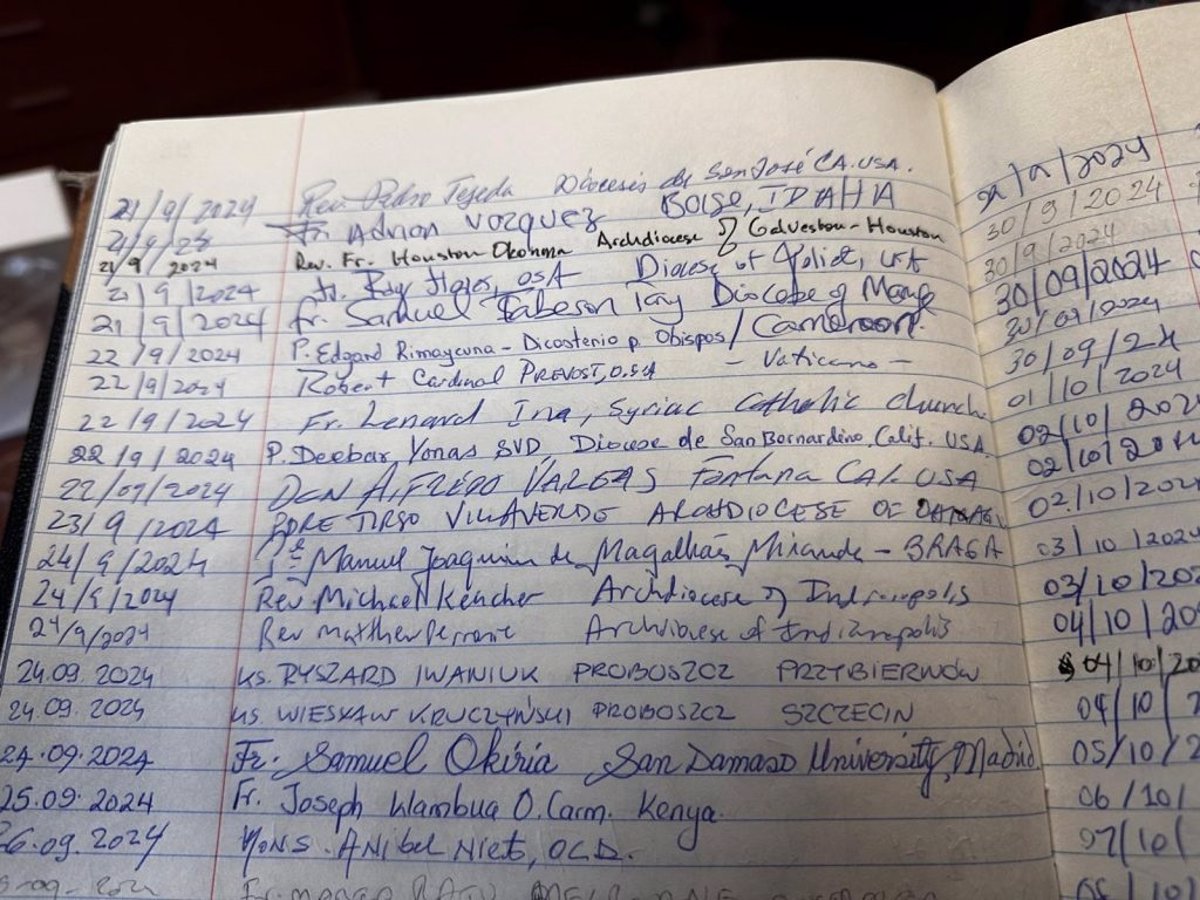 21/9/2024 Rev. Pedro Tejeda Diócesis de San José CA. USA.
Fr. Adrian Vazquez BOISE, IDAHA
21/9/2024 Rev. Fr. Houston Okonma Archdiocese of Galveston-Houston
21/9/2024 OSA Diocese of Joliet, USA
21/9/2024 fr. Samuel Diocese of
Cameroon.
22/9/2024 P. Edgard Rimaycuna - Dicasterio p. Obispos/
22/9/2024 Robert Cardinal PREVOST, O.S.A - Vaticano -
22/9/2024 Fr. Lenard Ina, Syriac Catholic church
22/9/2024 P. Deebar Yonas SVD, Diocese de San Bernardino, Calif. USA.
22/09/2024 DCN ALFREDO VARGAS Fontana CAL. USA
23/9/2024 PDRE TIRSO VILLAVERDE ARCHDIOCESE OF
24/9/2024 Manuel Joaquim de Magalhães Miranda - BRAGA
24/9/2024 Rev. Michael Keucher Archdiocese of Indianapolis
24/9/2024 Rev Matthew Perronie Archdiocese of Indianapolis
24.09.2024 KS. RYSZARD IWANIUK PROBOSZCZ PRZYBIERNÓW
24.09.2024 KS. WIESŁAW KRUCZYŃSKI PROBOSZCZ SZCZECIN
24.09.2024 Fr. Samuel Okiria San Damaso University, Madrid.
25.09.2024 Fr. Joseph Wambua O.Carm. Kenya.
26.09.2024 MONS. ANibel Nieto, OCD.
30/9/2024
30/9/2024
30/09/2024
30/09/2024
30/09/24
01/10/2024
02/10/202
02/10/20
02.10/202
03/10/2024
03/10/202
04/10/20
04/10/20
04/10/2
05/10/2
06/10/
07/10/